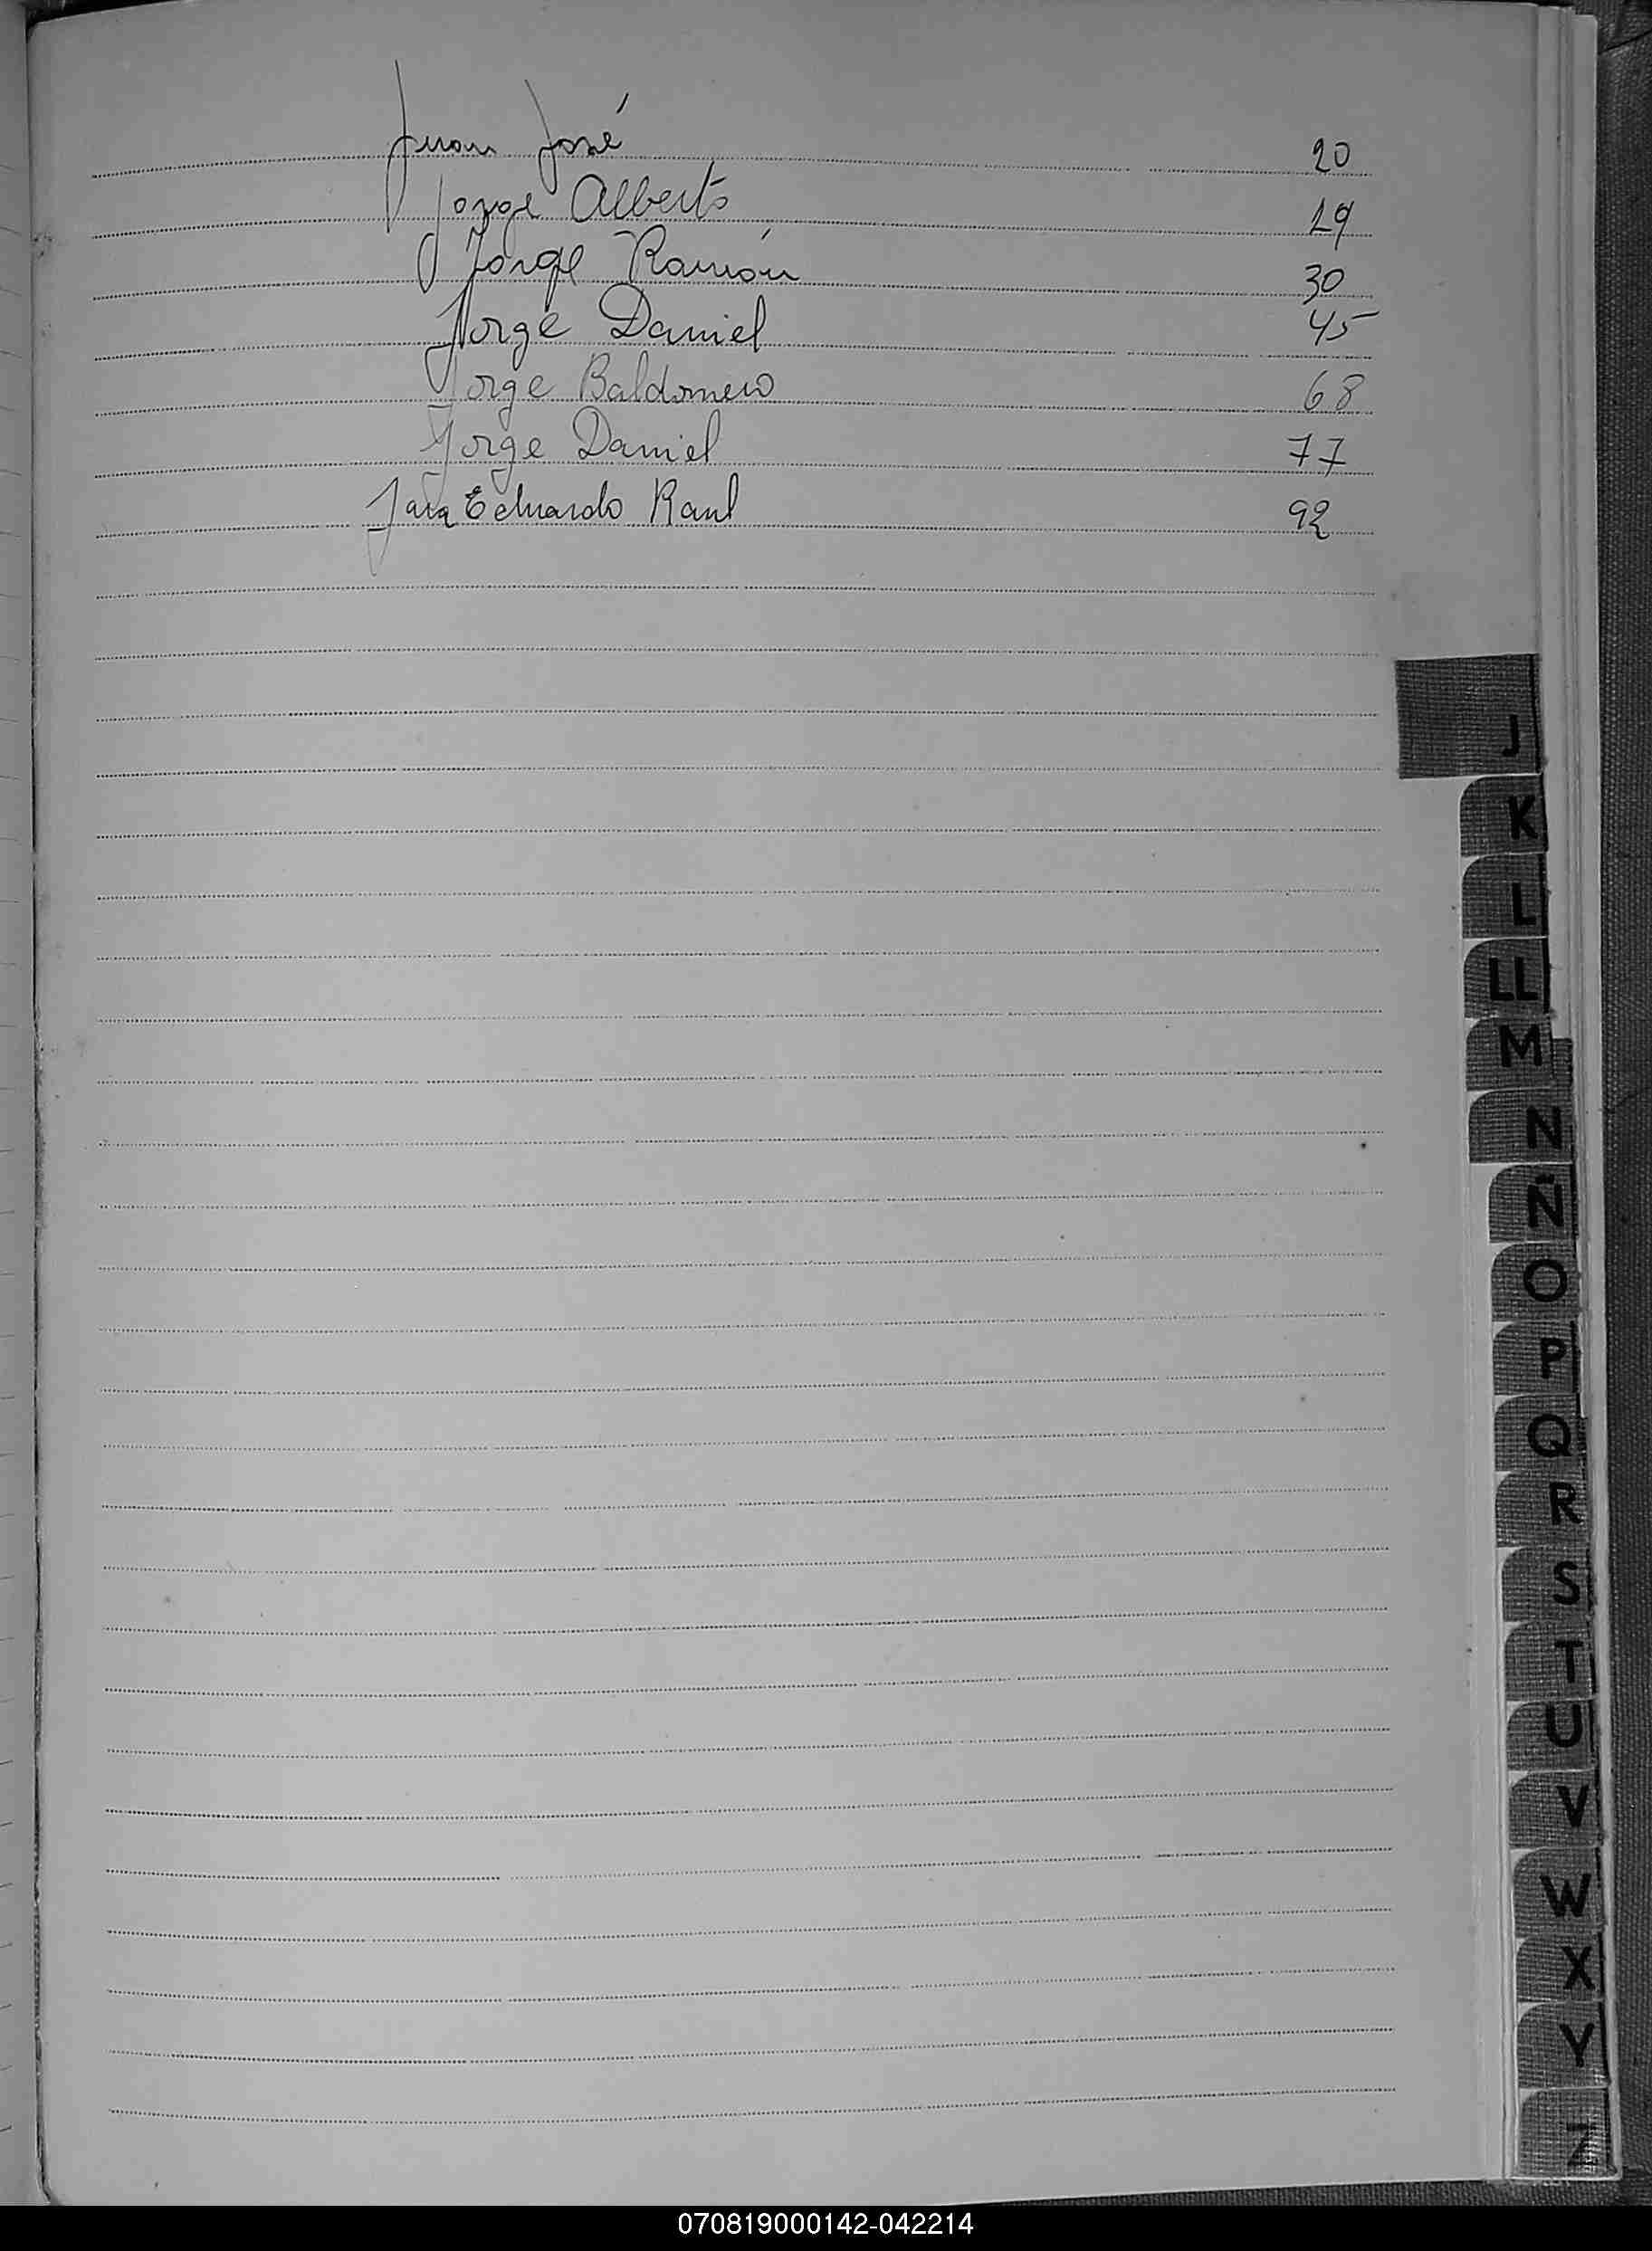 Juan José 20
Jorge Alberto 19
Jorge Ramón 30
Jorge Daniel 45
Jorge Baldomero 68
Jorge Daniel 77
Jara Eduardo Raul 92
J
K
L
LL
M
N
Ñ
O
P
Q
R
S
T
U
V
W
X
Y
Z
070819000142-042214